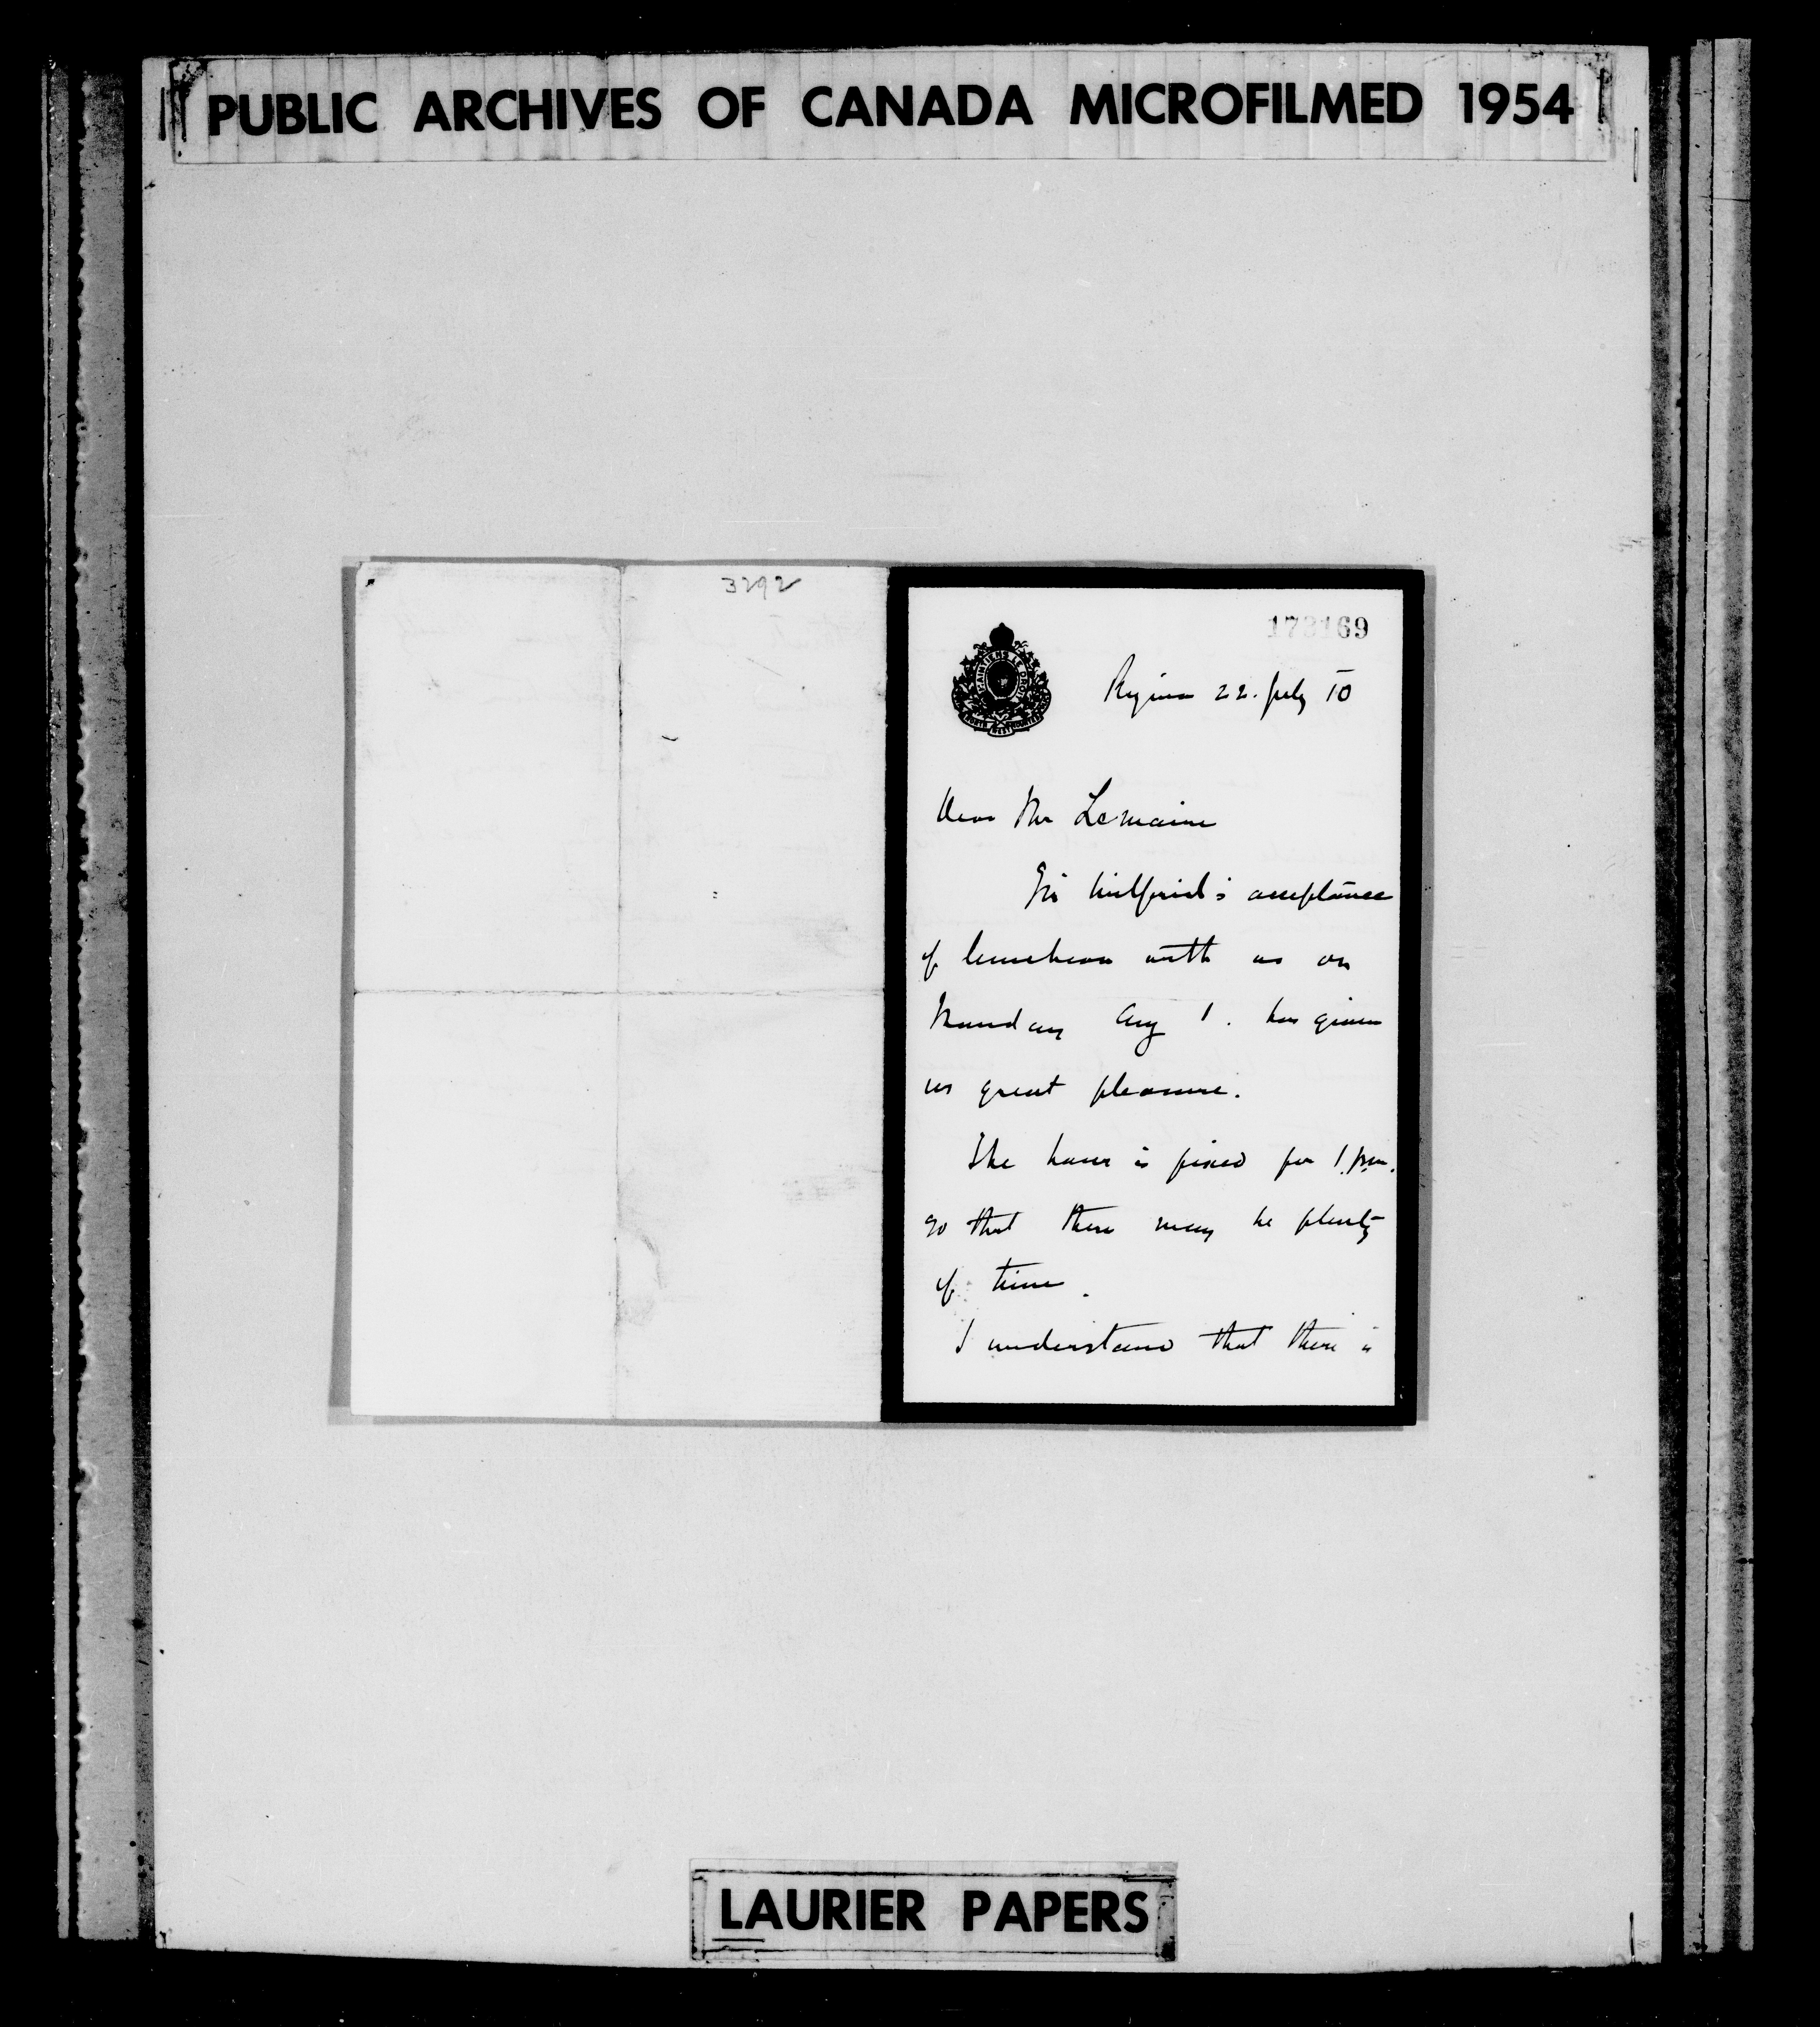 PUBLIC ARCHIVES OF CANADA MICROFILMED 1954
3292
173169
MAINTIENS LE DROIT
NORTH WEST MOUNTED
Regina 22. July 10
Dear Mr Lemaire
Sir Wilfrid's acceptance
of luncheon with us on
Monday Aug 1. has given
us great pleasure.
The hour is fixed for 1 p.m.
so that there may be plenty
of time.
I understand that there is
LAURIER PAPERS